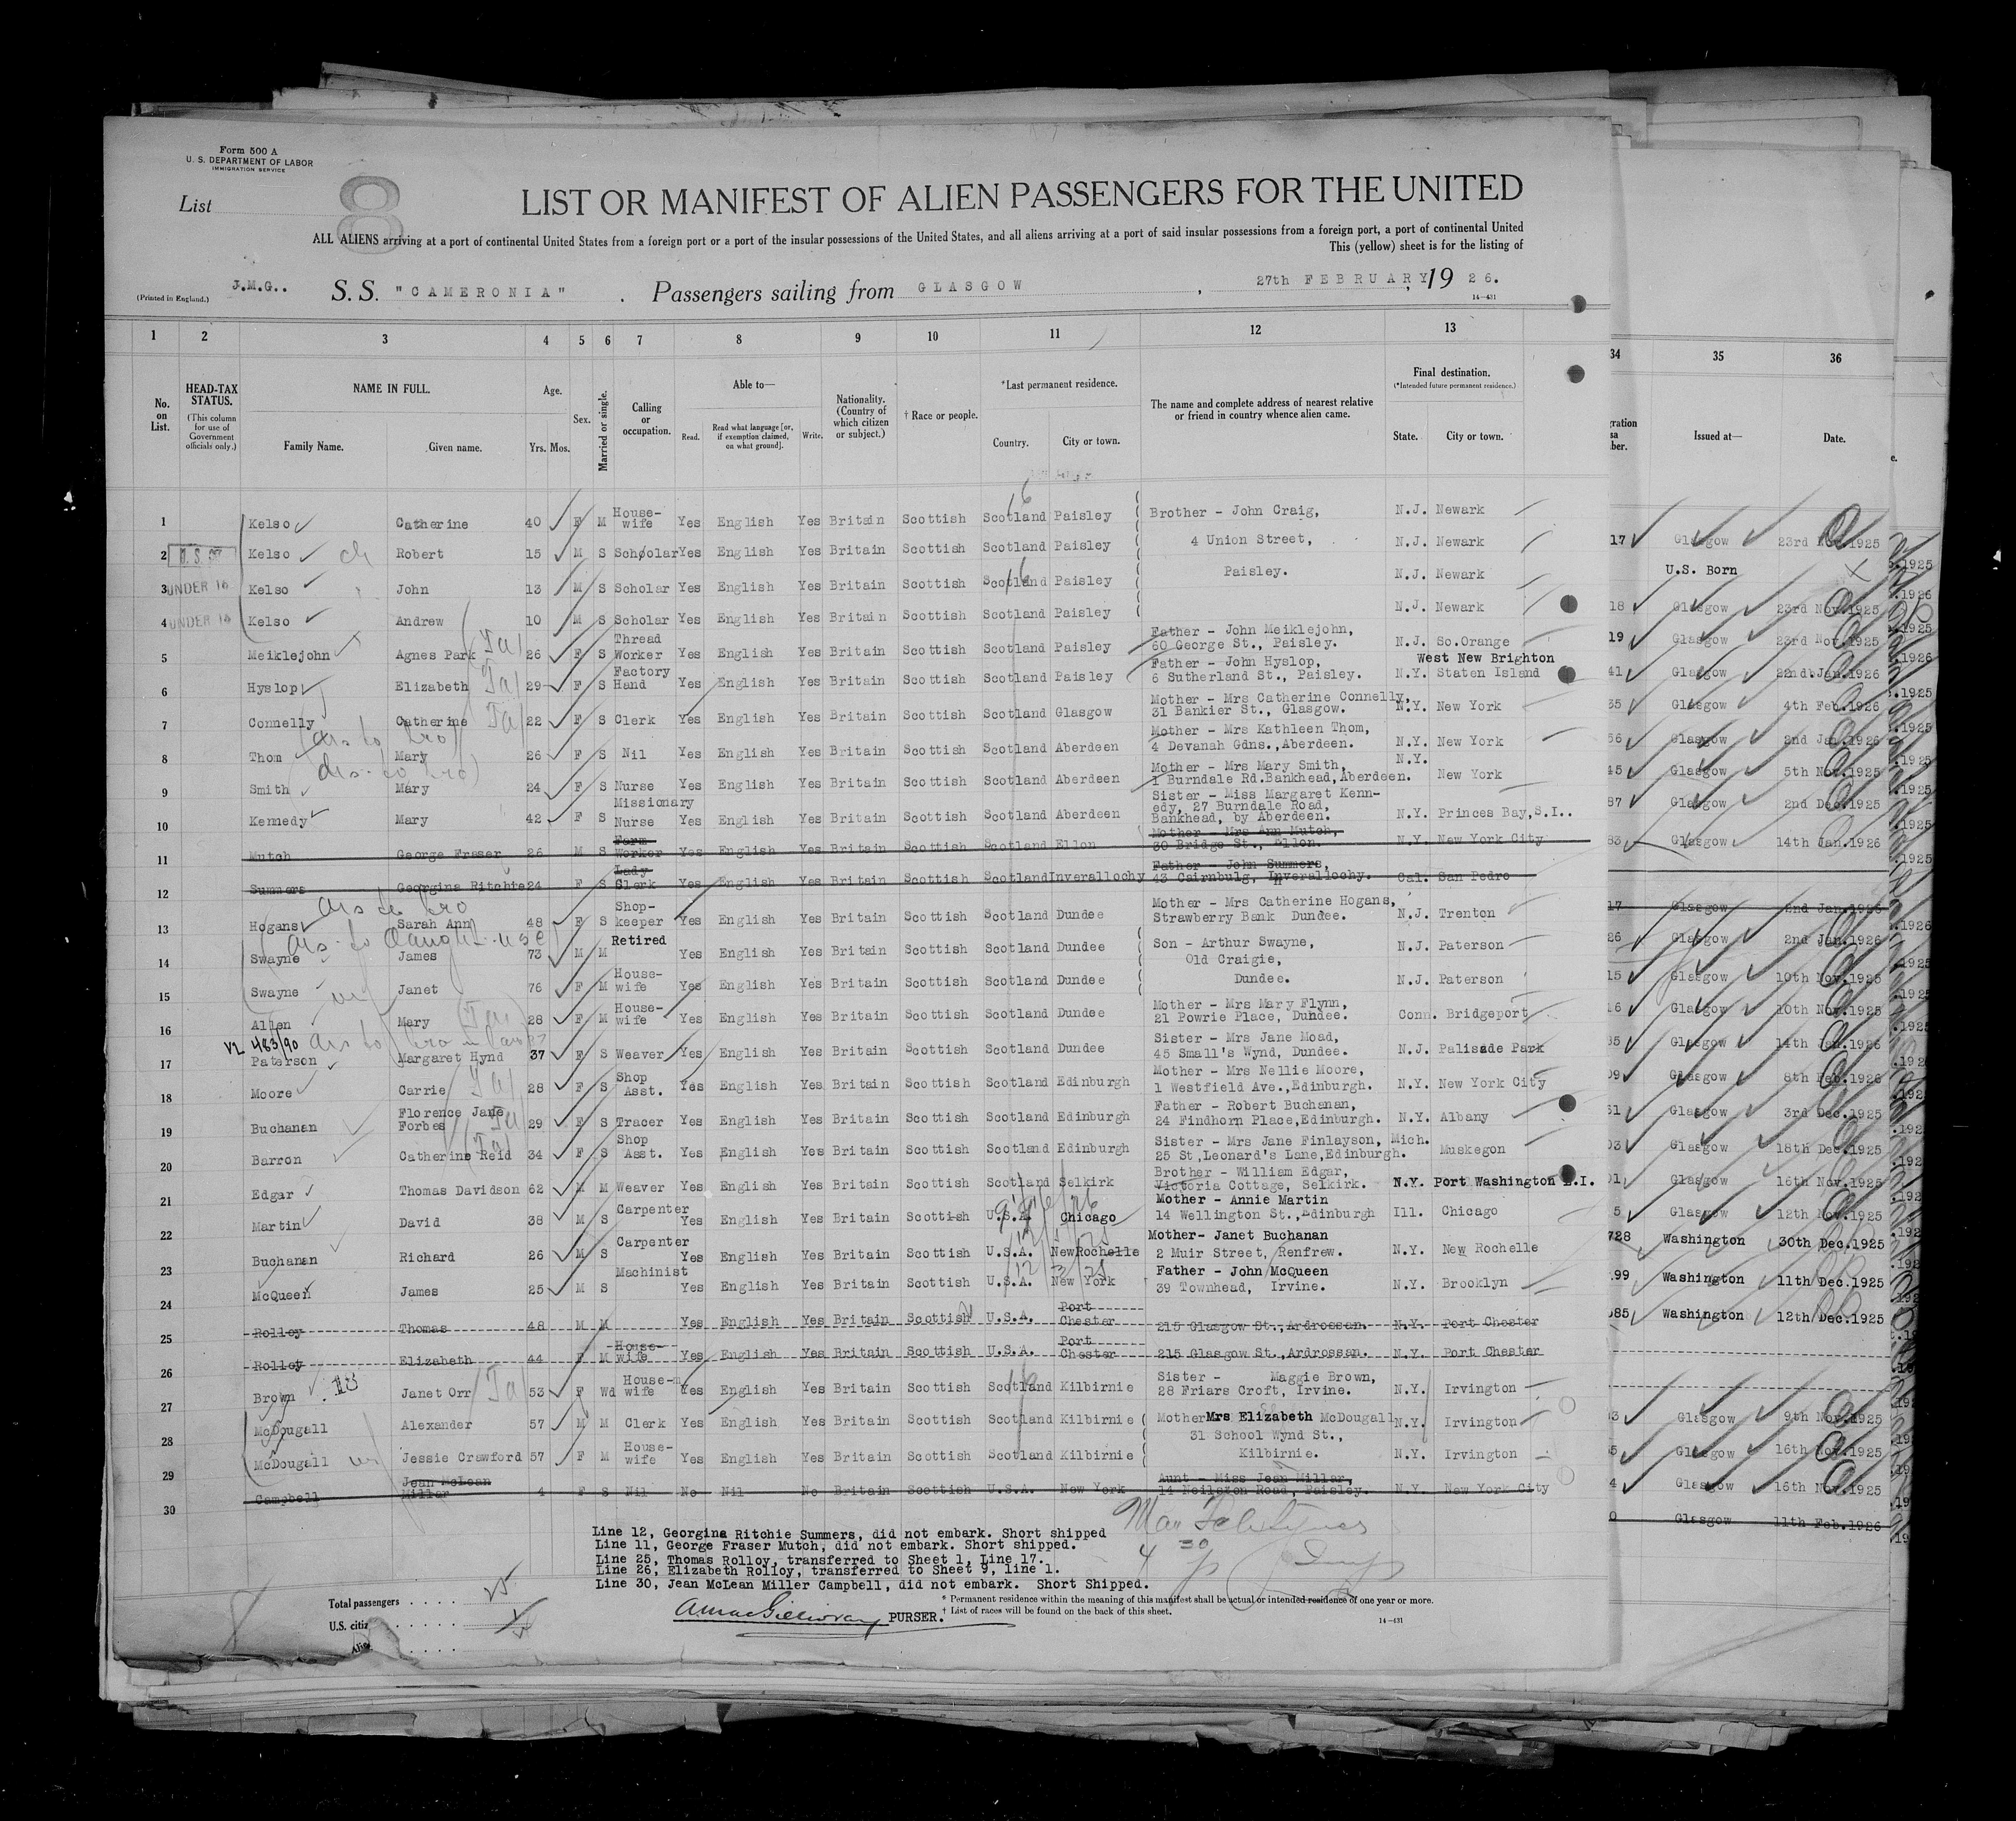 Form 500 A
U. S. DEPARTMENT OF LABOR
IMMIGRATION SERVICE
List 8
LIST OR MANIFEST OF ALIEN PASSENGERS FOR THE UNITED
ALL ALIENS arriving at a port of continental United States from a foreign port or a port of the insular possessions of the United States, and all aliens arriving at a port of said insular possessions from a foreign port, a port of continental United
This (yellow) sheet is for the listing of
(Printed in England.) J.M.G.. S. S. "CAMERONIA" . Passengers sailing from GLASGOW , 27th FEBRUARY, 19 26.
14-431
1 2 3 4 5 6 7 8 9 10 11 12 13 34 35 36
No. on List. HEAD-TAX STATUS. (This column for use of Government officials only.) NAME IN FULL. Family Name. Given name. Age. Yrs. Mos. Sex. Married or single. Calling or occupation. Able to— Read. Read what language [or, if exemption claimed, on what ground]. Write. Nationality. (Country of which citizen or subject.) † Race or people. *Last permanent residence. Country. City or town. The name and complete address of nearest relative or friend in country whence alien came. Final destination. (*Intended future permanent residence.) State. City or town. Issued at— Date.
1 Kelso Catherine 40 F M House-wife Yes English Yes Britain Scottish Scotland Paisley Brother - John Craig, N.J. Newark 17 Glasgow 23rd Nov.1925
2 Kelso Robert 15 M S Scholar Yes English Yes Britain Scottish Scotland Paisley 4 Union Street, N.J. Newark U.S. Born
3 UNDER 16 Kelso John 13 M S Scholar Yes English Yes Britain Scottish Scotland Paisley Paisley. N.J. Newark 18 Glasgow 23rd Nov.1925
4 UNDER 16 Kelso Andrew 10 M S Scholar Yes English Yes Britain Scottish Scotland Paisley N.J. Newark 19 Glasgow 23rd Nov.1925
5 Meiklejohn Agnes Park 26 F S Thread Worker Yes English Yes Britain Scottish Scotland Paisley Father - John Meiklejohn, 60 George St., Paisley. N.J. So.Orange 41 Glasgow 22nd.Jan.1926
6 Hyslop Elizabeth 29 F S Factory Hand Yes English Yes Britain Scottish Scotland Paisley Father - John Hyslop, 6 Sutherland St., Paisley. N.Y. West New Brighton Staten Island 35 Glasgow 4th Feb.1926
7 Connelly Catherine 22 F S Clerk Yes English Yes Britain Scottish Scotland Glasgow Mother - Mrs Catherine Connelly, 31 Bankier St., Glasgow. N.Y. New York 56 Glasgow 2nd Jan.1926
8 Thom Mary 26 F S Nil Yes English Yes Britain Scottish Scotland Aberdeen Mother - Mrs Kathleen Thom, 4 Devanah Gdns.,Aberdeen. N.Y. New York 45 Glasgow 5th Nov.1925
9 Smith Mary 24 F S Nurse Yes English Yes Britain Scottish Scotland Aberdeen Mother - Mrs Mary Smith, 1 Burndale Rd.Bankhead,Aberdeen. N.Y. New York 87 Glasgow 2nd Dec.1925
10 Kennedy Mary 42 F S Missionary Nurse Yes English Yes Britain Scottish Scotland Aberdeen Sister - Miss Margaret Kenn-edy, 27 Burndale Road, Bankhead, by Aberdeen. N.Y. Princes Bay,S.I.. 83 14th Jan.1926
11 Mutch George Fraser 26 M S Farm Worker Yes English Yes Britain Scottish Scotland Ellon Mother - Mrs Ann Mutch, 30 Bridge St., Ellon. N.Y. New York City
12 Summers Georgina Ritchie 24 F S Lady Clerk Yes English Yes Britain Scottish Scotland Inverallochy Father - John Summers, 43 Cairnbulg, Inverallochy. Cal. San Pedro 17 Glasgow 2nd Jan.1926
13 Hogans Sarah Ann 48 F S Shop-keeper Yes English Yes Britain Scottish Scotland Dundee Mother - Mrs Catherine Hogans, Strawberry Bank Dundee. N.J. Trenton 26 Glasgow 2nd Jan.1926
14 Swayne James 73 M M Retired Yes English Yes Britain Scottish Scotland Dundee Son - Arthur Swayne, Old Craigie, N.J. Paterson 15 Glasgow 10th Nov.1925
15 Swayne Janet 76 F M House-wife Yes English Yes Britain Scottish Scotland Dundee Dundee. N.J. Paterson 16 Glasgow 10th Nov.1925
16 Allen Mary 28 F M House-wife Yes English Yes Britain Scottish Scotland Dundee Mother - Mrs Mary Flynn, 21 Powrie Place, Dundee. Conn. Bridgeport 35 Glasgow 14th Jan.1926
483/90
17 Paterson Margaret Hynd 37 F S Weaver Yes English Yes Britain Scottish Scotland Dundee Sister - Mrs Jane Moad, 45 Small's Wynd, Dundee. N.J. Palisade Park 09 Glasgow 8th Feb.1926
18 Moore Carrie 28 F S Shop Asst. Yes English Yes Britain Scottish Scotland Edinburgh Mother - Mrs Nellie Moore, 1 Westfield Ave.,Edinburgh. N.Y. New York City 51 Glasgow 3rd Dec.1925
19 Buchanan Florence Jane Forbes 29 F S Tracer Yes English Yes Britain Scottish Scotland Edinburgh Father - Robert Buchanan, 24 Findhorn Place,Edinburgh. N.Y. Albany 03 Glasgow 18th Dec.1925
20 Barron Catherine Reid 34 F S Shop Asst. Yes English Yes Britain Scottish Scotland Edinburgh Sister - Mrs Jane Finlayson, 25 St,Leonard's Lane,Edinburgh. Mich. Muskegon 01 Glasgow 16th Nov.1925
21 Edgar Thomas Davidson 62 M M Weaver Yes English Yes Britain Scottish Scotland Selkirk Brother - William Edgar, Victoria Cottage, Selkirk. N.Y. Port Washington L.I. 5 Glasgow 12th Nov.1925
22 Martin David 38 M S Carpenter Yes English Yes Britain Scottish U.S.A. Chicago Mother - Annie Martin 14 Wellington St.,Edinburgh Ill. Chicago 728 Washington 30th Dec.1925
23 Buchanan Richard 26 M S Carpenter Yes English Yes Britain Scottish U.S.A. NewRochelle Mother- Janet Buchanan 2 Muir Street, Renfrew. N.Y. New Rochelle 99 Washington 11th Dec.1925
24 McQueen James 25 M S Machinist Yes English Yes Britain Scottish U.S.A. New York Father - John McQueen 39 Townhead, Irvine. N.Y. Brooklyn 085 Washington 12th Dec.1925
25 Rolloy Thomas 48 M M Yes English Yes Britain Scottish U.S.A. Port Chester 215 Glasgow St.,Ardrossan. N.Y. Port Chester
26 Rolloy Elizabeth 44 F M House-wife Yes English Yes Britain Scottish U.S.A. Port Chester 215 Glasgow St.,Ardrossan. N.Y. Port Chester
27 Brown Janet Orr 53 F Wd House-wife Yes English Yes Britain Scottish Scotland Kilbirnie Sister - Maggie Brown, 28 Friars Croft, Irvine. N.Y. Irvington Glasgow 9th Nov.1925
28 McDougall Alexander 57 M M Clerk Yes English Yes Britain Scottish Scotland Kilbirnie Mother Mrs Elizabeth McDougall 31 School Wynd St., N.Y. Irvington Glasgow 16th Nov.1925
29 McDougall Jessie Crawford 57 F M House-wife Yes English Yes Britain Scottish Scotland Kilbirnie Kilbirnie. N.Y. Irvington 4 Glasgow 16th Nov.1925
30 Campbell Jean McLean Millar 4 F S Nil No Nil No Britain Scottish U.S.A. New York Aunt - Miss Jean Millar, 14 Neilston Road, Paisley. N.Y. New York City Glasgow 11th Feb.1926
Line 12, Georgina Ritchie Summers, did not embark. Short shipped
Line 11, George Fraser Mutch, did not embark. Short shipped.
Line 25, Thomas Rolloy, transferred to Sheet 1, Line 17.
Line 26, Elizabeth Rolloy, transferred to Sheet 9, line 1.
Line 30, Jean McLean Miller Campbell, did not embark. Short Shipped.
Total passengers . . . . 25
U.S. citiz . . . . .
PURSER.
* Permanent residence within the meaning of this manifest shall be actual or intended residence of one year or more.
† List of races will be found on the back of this sheet.
14-431